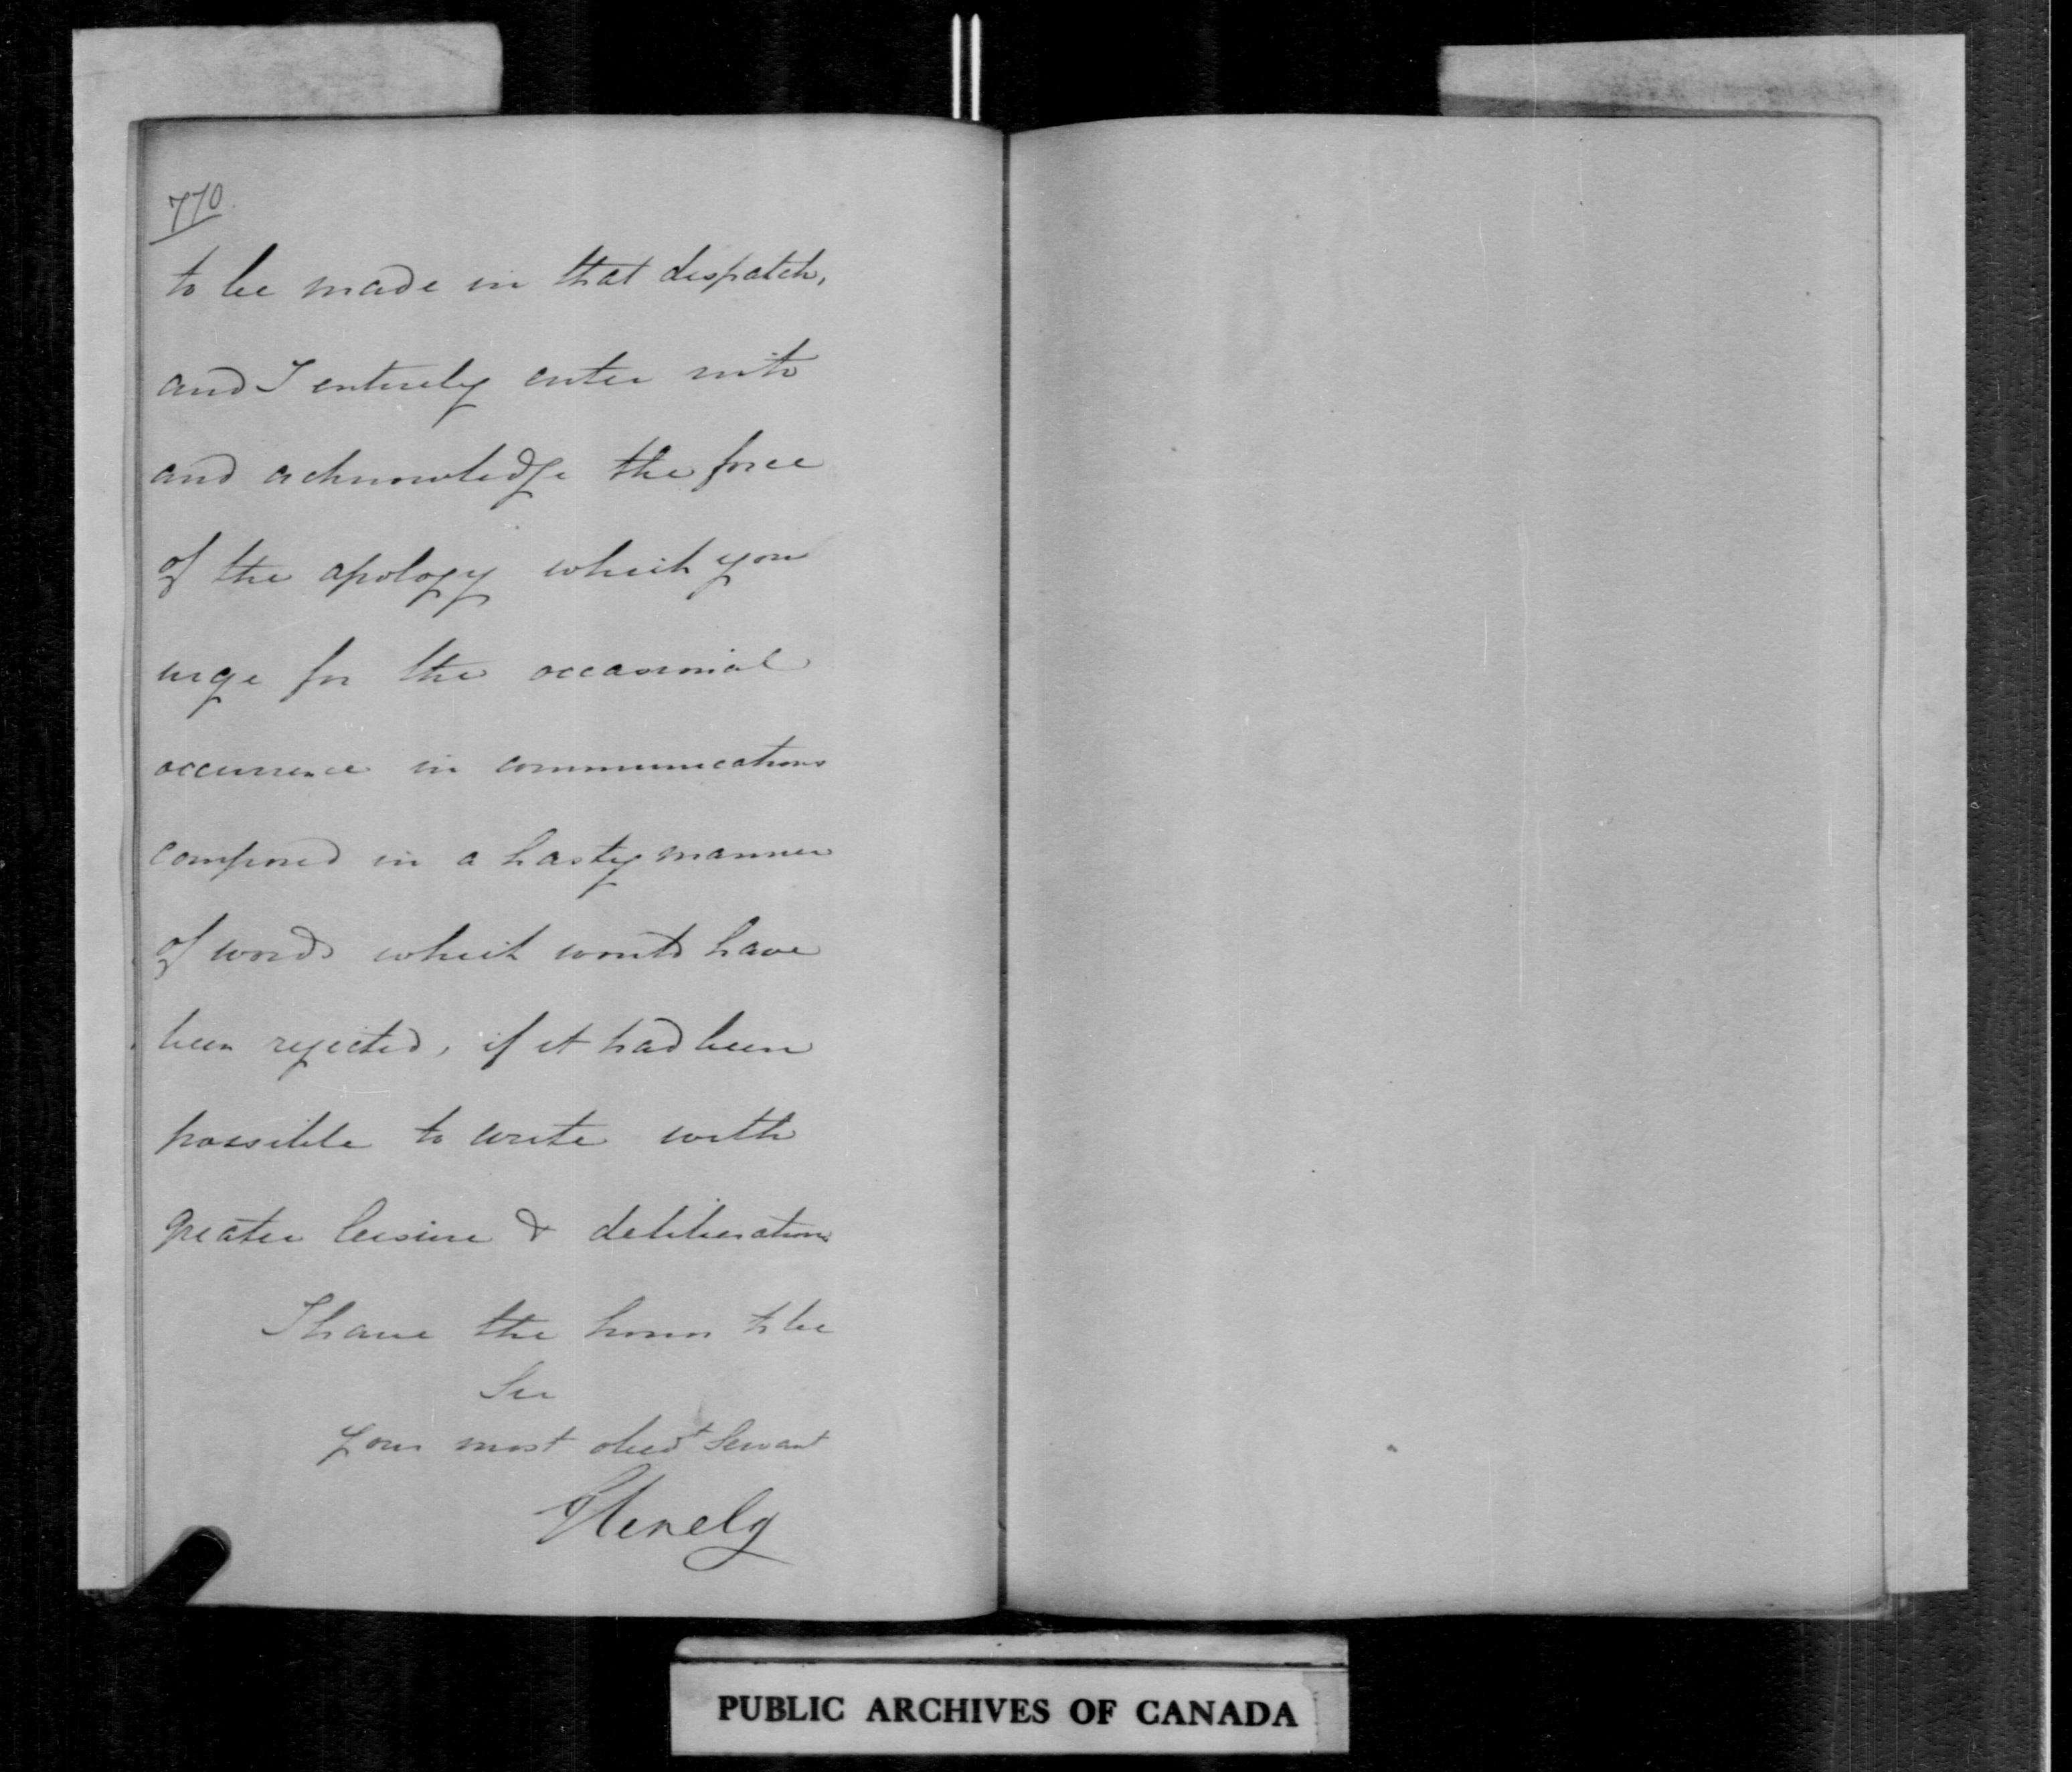 770
to be made in that despatch,
and I entirely enter into
and acknowledge the force
of the apology which you
urge for the occasional
occurrence in communications
composed in a hasty manner
of words which would have
been rejected, if it had been
possible to write with
greater leisure & deliberation
I have the honor to be
Sir
Your most obedt Servant
Glenelg
PUBLIC ARCHIVES OF CANADA